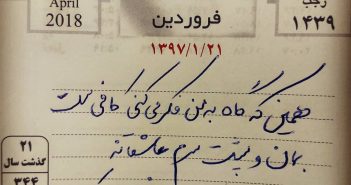 April
2018
فروردین
رجب
۱۴۳۹
۱۳۹۷/۱/۲۱
همین که گاه به من فکر می کنی کافی ست
بمان و نیت مرم عاشقانه
۲۱
گذشت سال
۳۴۴